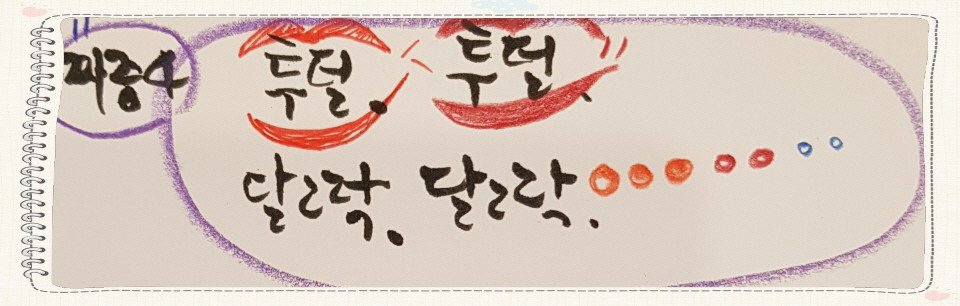 파종4
투덜. 투덜.
달그락. 달그락.